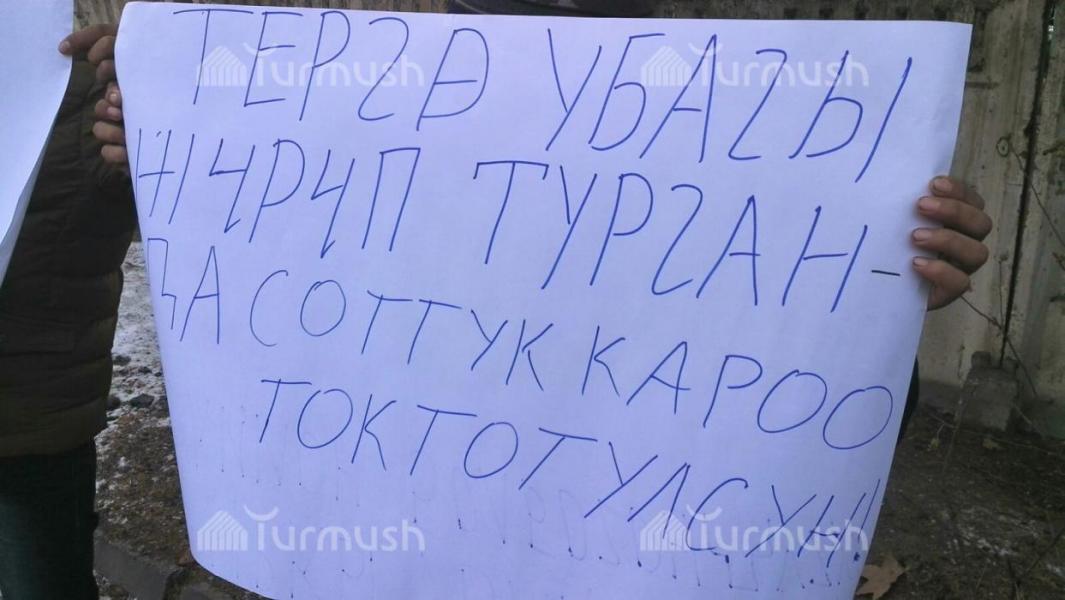 Turmush Turmush
ТЕРГӨ УБАГЫ
ЖҮРҮП ТУРГАН-
ДА СОТТУК КАРОО
ТОКТОТУЛСУН!
Turmush Turmush